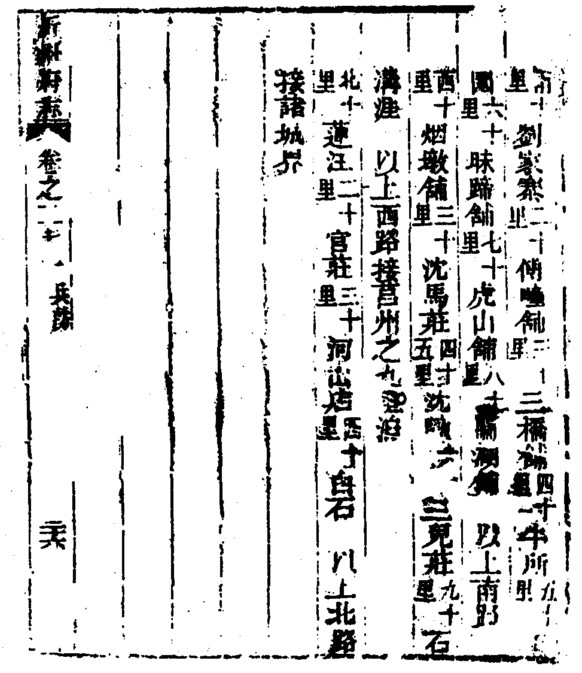 南十里 劉家寨二十里 傅疃舖三十里 三橋舖四十里 牛所五里
六十里 昧蹄舖七十里 虎山舖八十里 舖 以上南路
西十里 烟墩舖三十里 沈馬莊四十五里 沈 三兒莊九十里 石
溝涯 以上西路接莒州之九泊
北十里 蓮汪二十里 官莊三十里 河山店四十里 白石 以上北路
接諸城界
沂州府志 卷之 兵防 二六